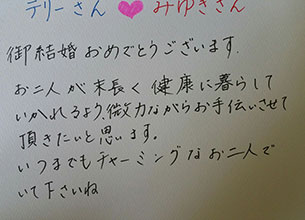 テリーさん ♥ みゆきさん
御結婚おめでとうございます.
お二人が末長く健康に暮らして
いかれるよう微力ながらお手伝いさせて
頂きたいと思います。
いつまでもチャーミングなお二人で
いて下さいね